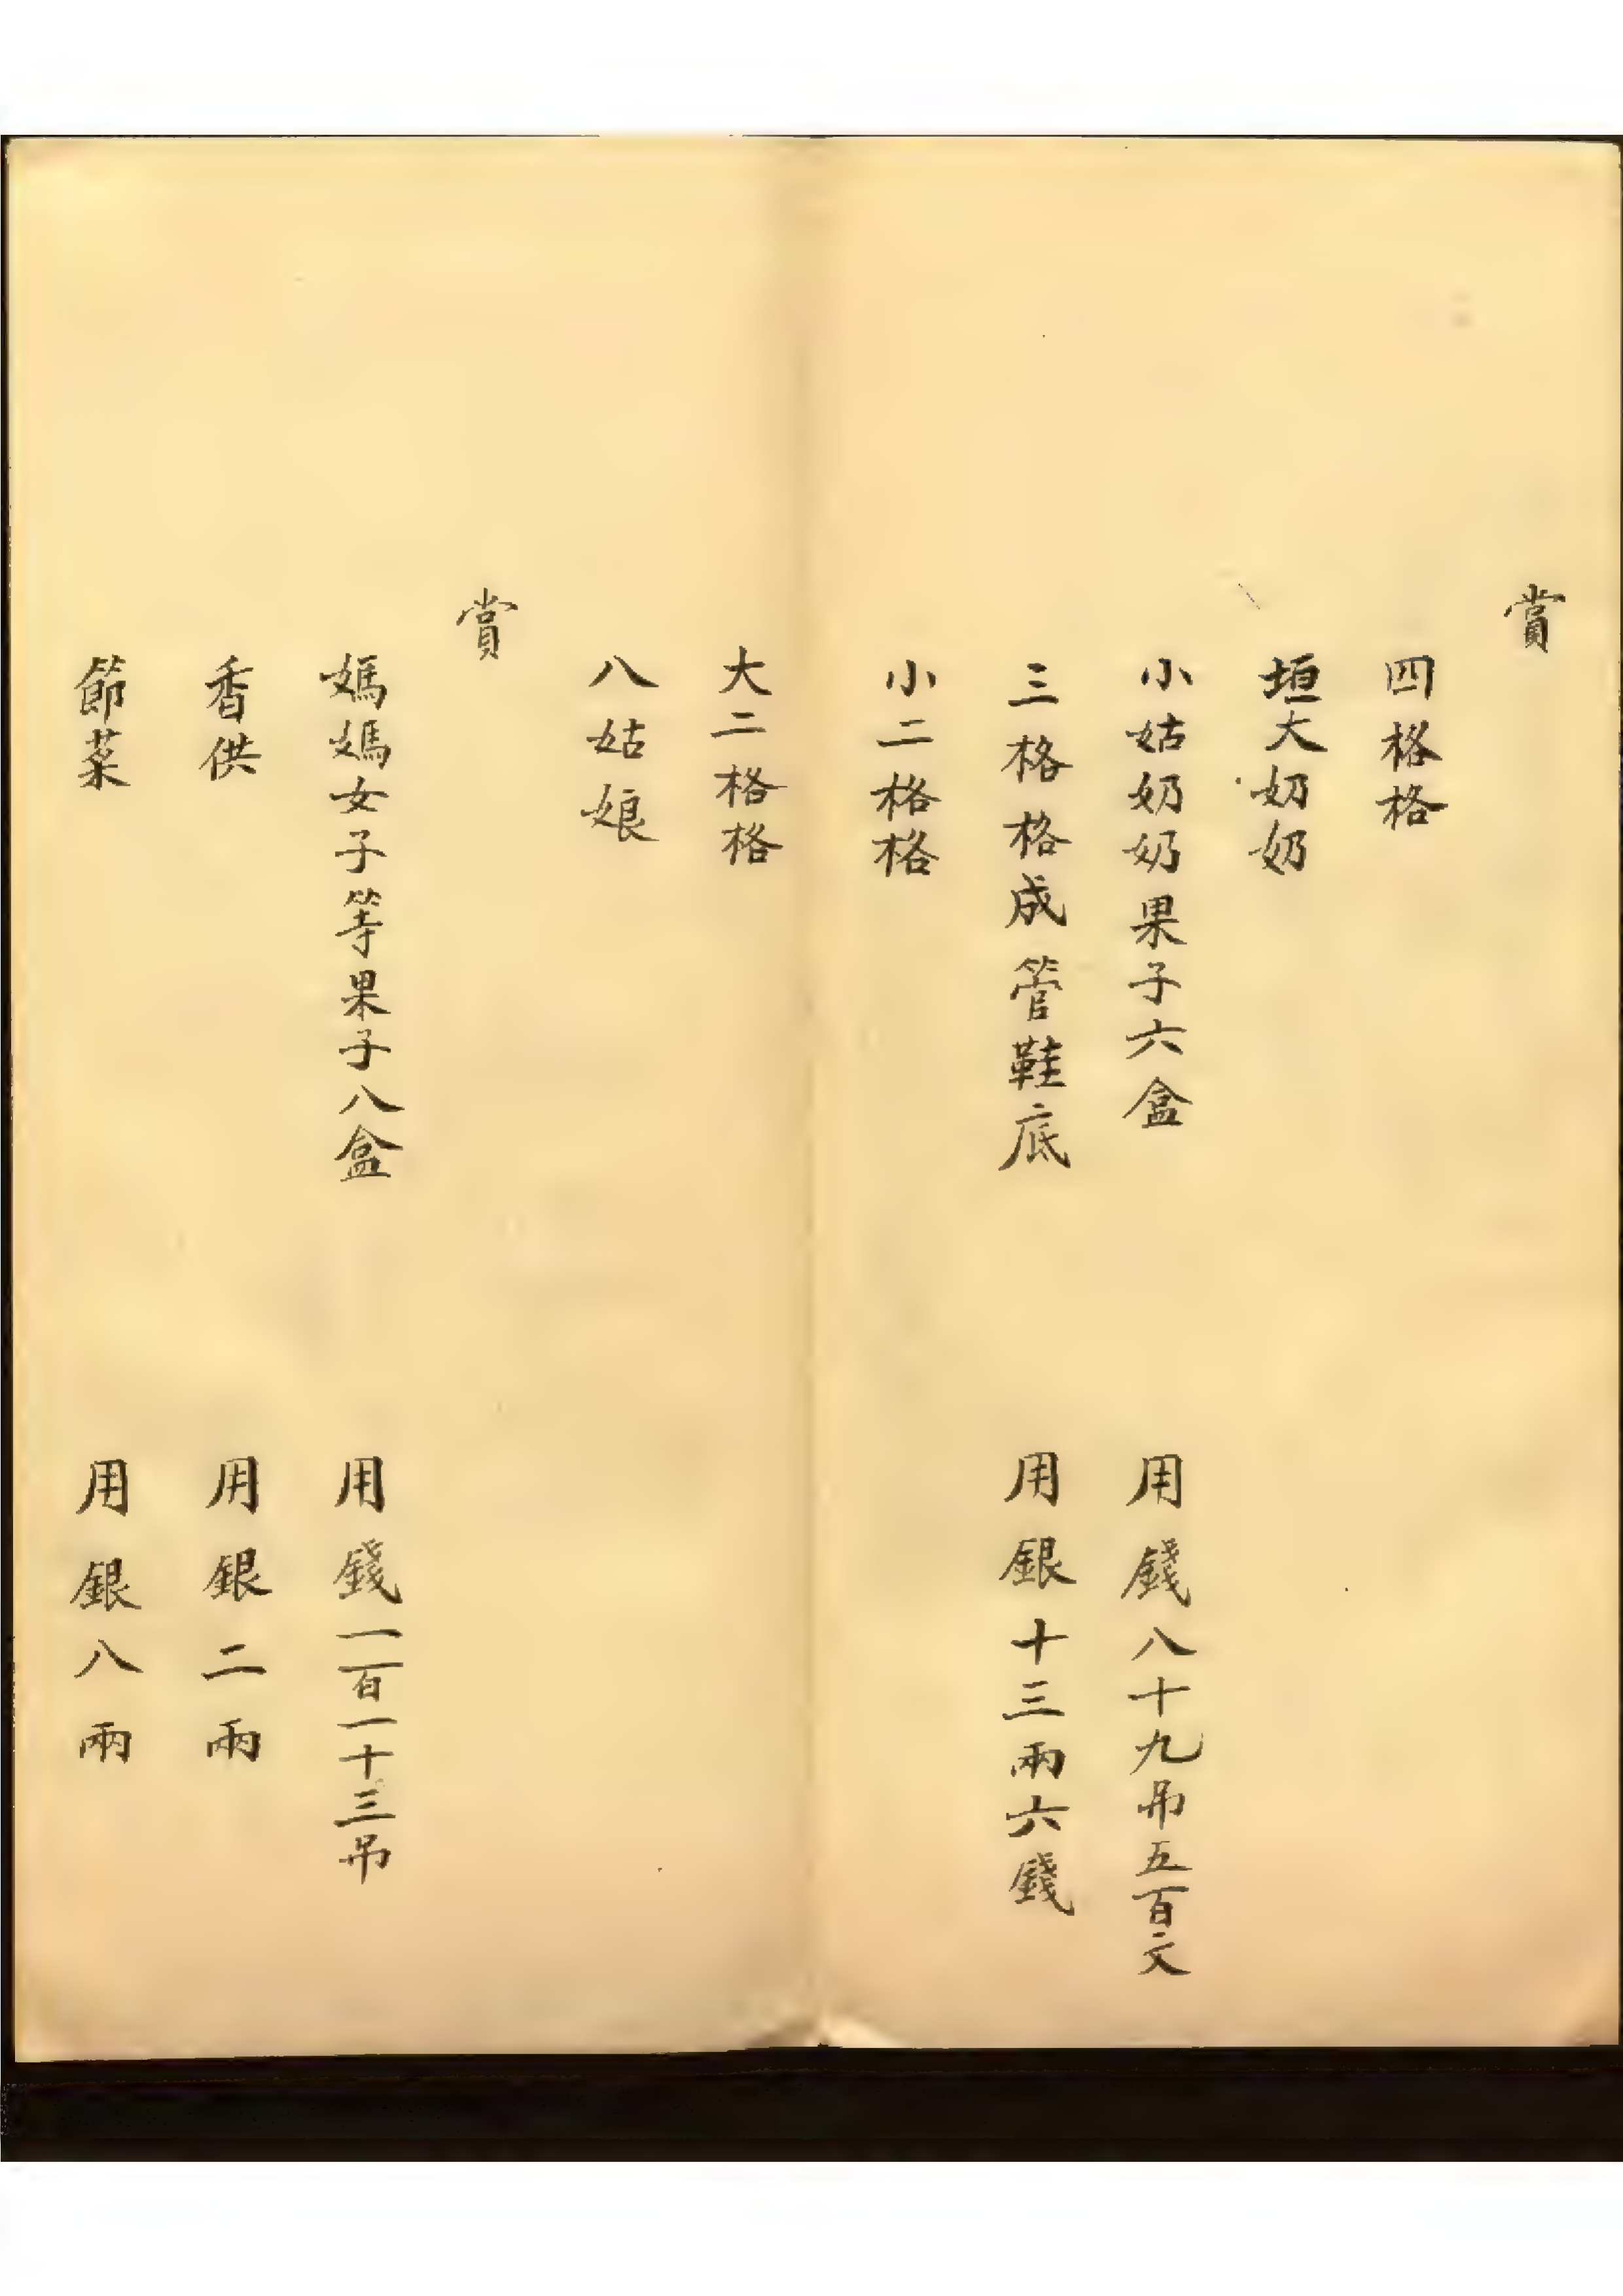 賞
四格格
垣大奶奶
小姑奶奶果子六盒 用錢八十九吊五百文
三格格成管鞋底 用銀十三兩六錢
小二格格
大二格格
八姑娘
賞
媽媽女子等果子八盒 用錢一百一十三吊
香供 用銀二兩
節菜 用銀八兩